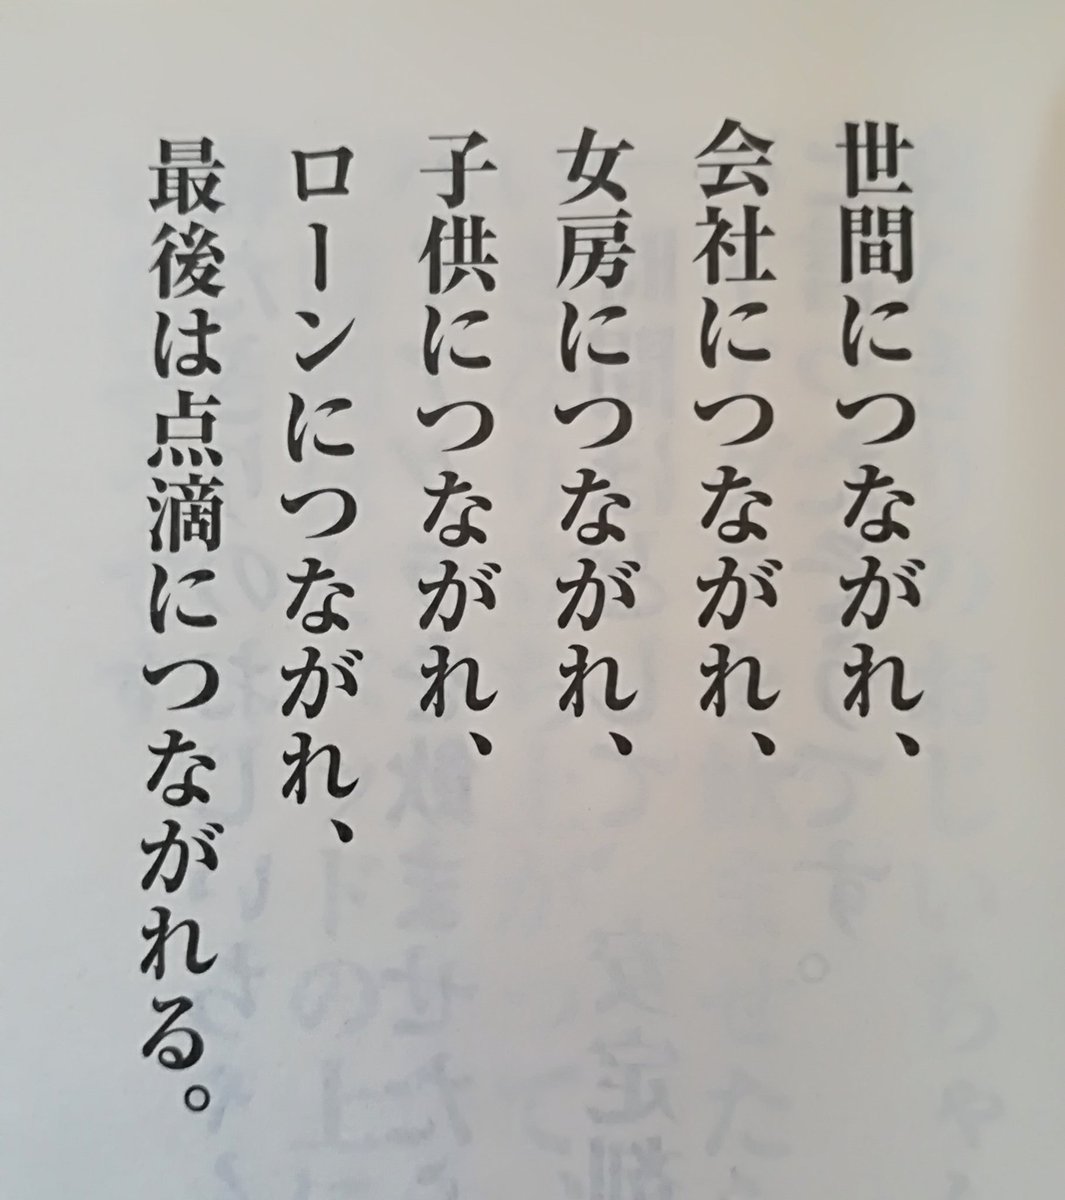 世間につながれ、
会社につながれ、
女房につながれ、
子供につながれ、
ローンにつながれ、
最後は点滴につながれる。